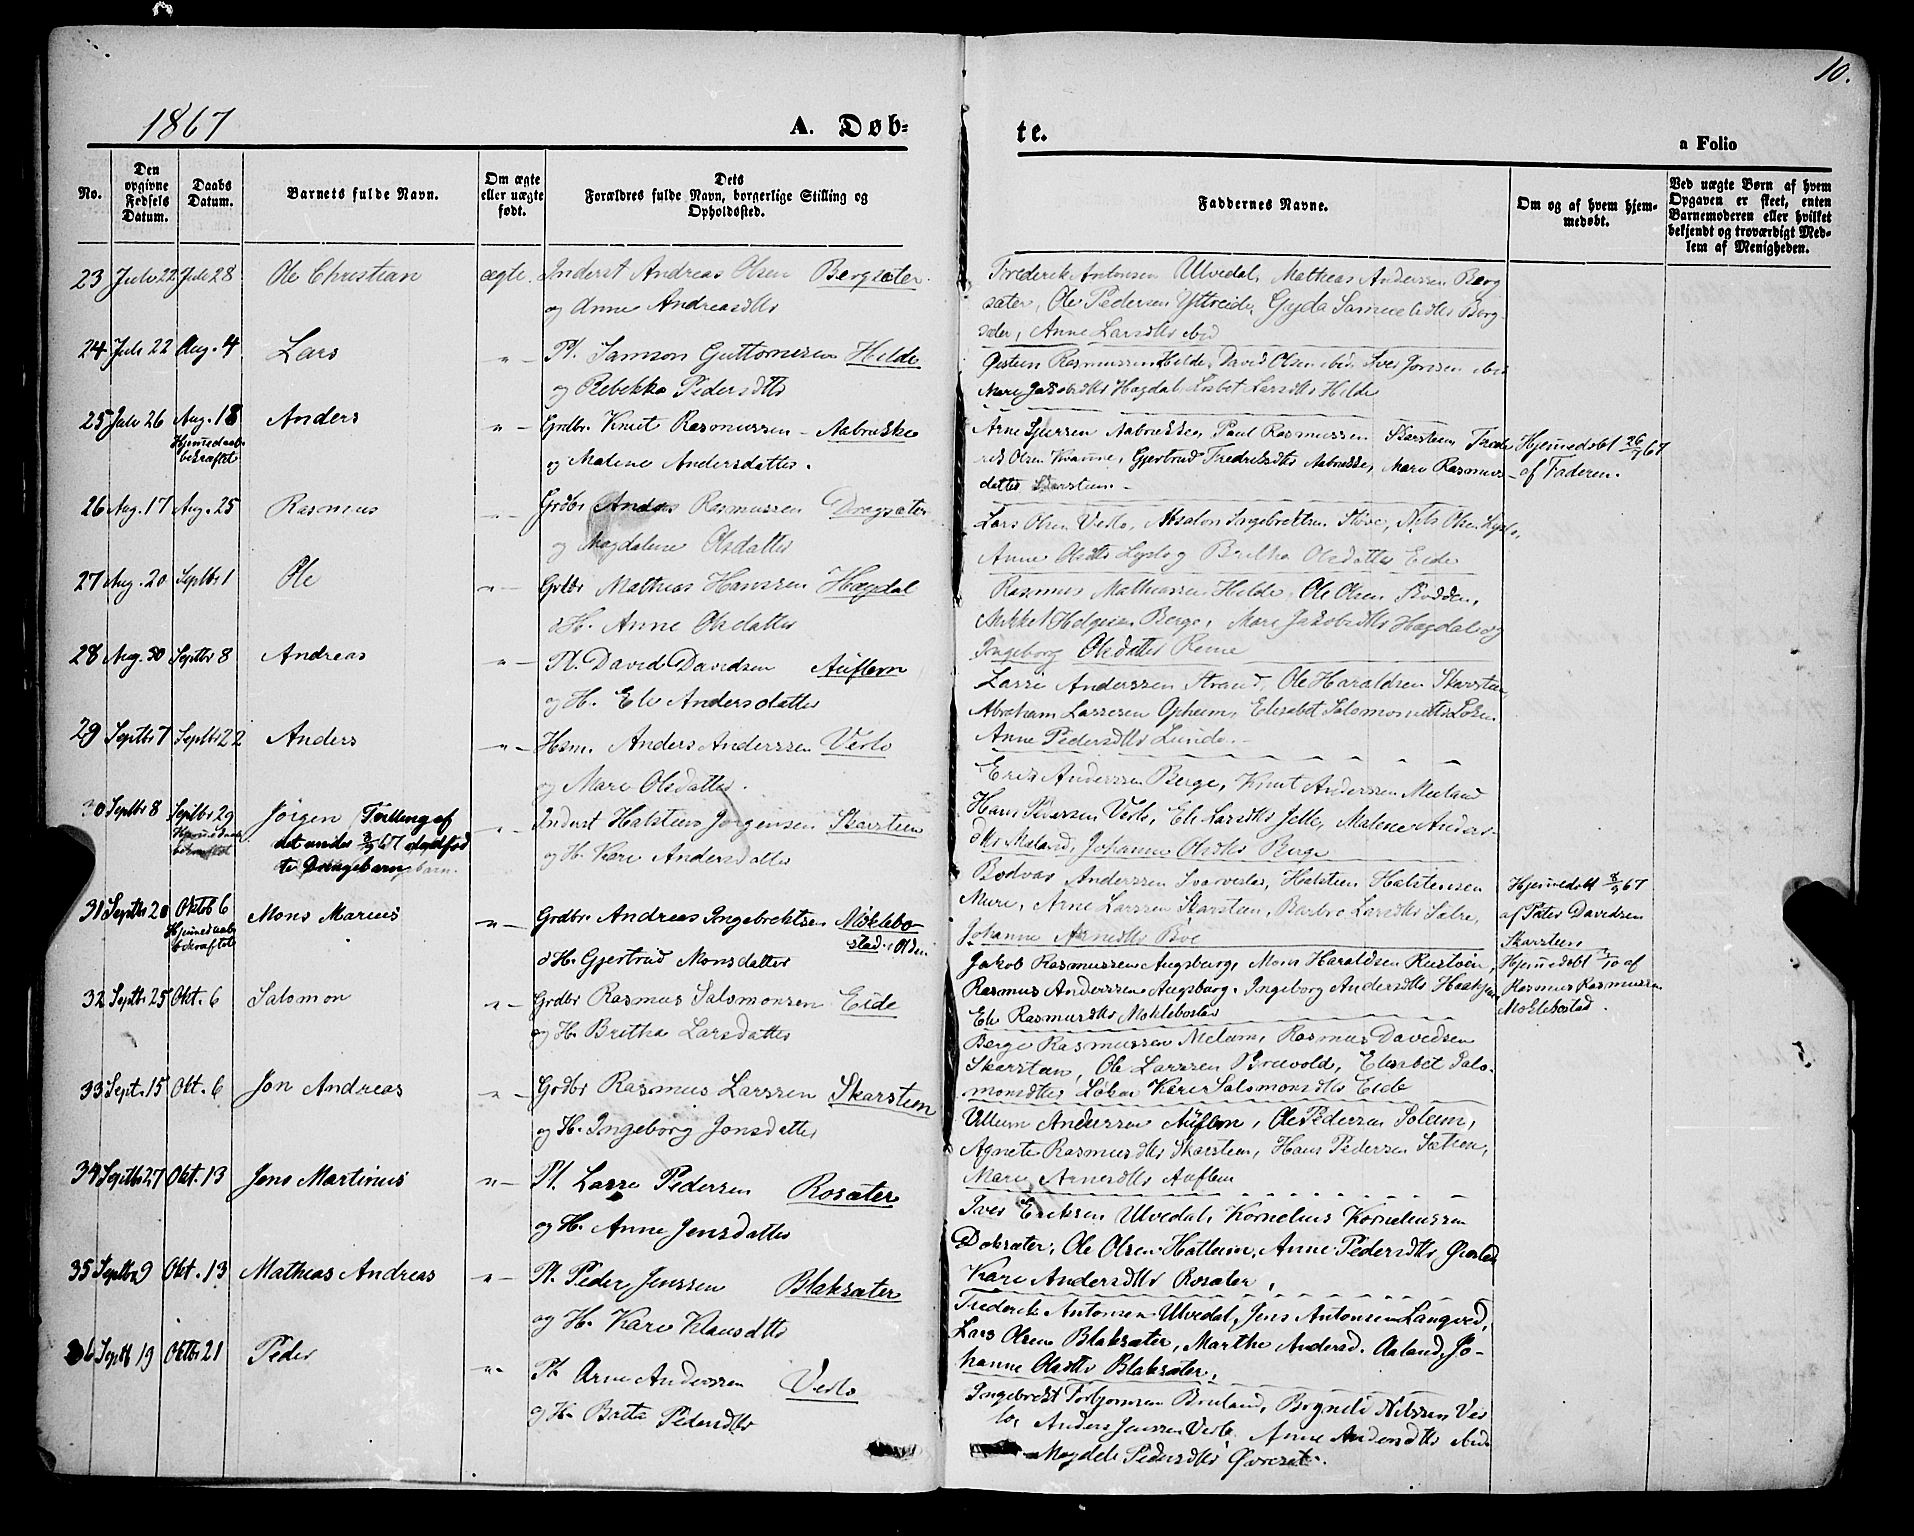 10.
1867
A. Døb-
te.
a Folio
No.
Den opgivne Fødsels Datum.
Daabs Datum.
Barnets fulde Navn.
Om ægte eller uægte født.
Dets Forældres fulde Navn, borgerlige Stilling og Opholdssted.
Faddernes Navne.
Om og af hvem hjem-
medøbt.
Ved uægte Børn af hvem
Opgaven er skeet, enten
Barnemoderen eller hvilket
bekjendt og troværdigt Med-
lem af Menigheden.
23 Juli 22 Juli 28 Ole Christian ægte. Inderst Andreas Olsen Bergsæter
og Anne Andreasdtr
Frederik Antonsen Ulvedal, Mathias Anderssen Berg
sæter, Ole Pedersen Yttreide, Gyda Samueldtr Berg-
sæter, Anne Larsdtr ibid
24 Juli 22 Aug. 4 Lars " Pl. Samson Guttormsen Hilde
og Rebekka Pedersdtr
Øistein Rasmussen Hilde, David Olsen ibid, Iver Jonsen ibid
Mari Jakobsdtr Hægdal, Lisbet Larsdtr Hilde
25 Juli 26 Aug. 18 Anders " Grdbr. Knut Rasmussen Aabrekke
Hjemmedaab
bekræftet
og Malene Andersdatter.
Arne Sjursen Aabrekke, Paul Rasmussen Skarstein, Frede
rik Olsen Kvamme, Gjertrud Fredriksdtr Aabrekke, Mari Rasmus-
datter Skarstein.
Hjemmedøbt 26/7 67
af Faderen.
26 Aug. 17 Aug. 25 Rasmus " Grdbr Anders Rasmussen Dregsæter
og Magdalene Olsdatter
Lars Olsen Verlo, Absalon Ingebrektsen Støve, Nils Olsen
Anne Olsdtr og Britha Olsdatter Eide
27 Aug. 20 Septbr 1 Ole " Grdbr Mathias Hanssen Hægdal
o H. Anne Olsdatter
Rasmus Mathiassen Hilde, Ole Olsen Bødden,
Mikkel Helgesen Berge, Mari Jakobsdtr Hægdal og
Ingeborg Olsdatter Renne
28 Aug. 30 Septbr 8 Andreas " Pl. David Davidsen Auflem
og H. Eli Andersdatter
Lasse Anderssen Strand, Ole Haraldsen Skarstein
Abraham Lassesen Opheim, Elisabet Salomonsdtr Løken
Anne Pedersdtr Lunde.
29 Septbr 7 Septbr 22 Anders " Hsm. Anders Anderssen Verlo
og Mari Olsdatter.
Erik Anderssen Berge, Knut Anderssen Meland
Hans Pederssen Verlo, Eli Larsdtr Jelle, Malene Anders-
dtr Meland, Johanne Olsdtr Berge
30 Septbr 8 Septbr 29 Jørgen Tvilling af " Inderst Halstein Jørgensen Skarstein
Hjemmedaab
bekræftet
det under 8/9 67 dødfød
te Drengebarn
og H. Kari Andersdatter
Bodvar Anderssen, Halstein Halstensen
Muri, Arne Larssen Skarstein, Barbro Larsdtr Sætre,
Johanne Arnesdtr Bøe
Hjemmedøbt 8/9 67
af Peter Davidsen
Skarstein
31 Septbr 20 Oktb 6 Mons Marius " Grdbr. Andreas Ingebrektsen Miklebo-
stad. Olden
Hjemmedaab
bekræftet
o H. Gjertrud Monsdatter
Jakob Rasmussen Augsburg, Mons Haraldsen Rustøen,
Rasmus Anderssen Augsburg, Ingeborg Andersdtr
Eli Rasmusdtr Moklebostad
Hjemmedøbt af
Rasmus Rasmussen
Moklebostad.
32 Septbr 25 Okt. 6 Salomon " Grdbr Rasmus Salomonsen Eide
og H. Britha Larsdatter
Berge Rasmussen Melem, Rasmus Davidsen
Skarstein, Ole Larssen Bruvold, Elisabet Salo-
monsdtr Løken Kari Salomonsdtr Eide
33 Sept. 15 Okt. 6 Jon Andreas " Grdbr Rasmus Larssen Skarstein
og H. Ingeborg Jonsdatter
Villum Anderssen Auflem, Ole Pedersen Solem,
Agnete Rasmusdtr Skarstein, Hans Pedersen Sætren,
Mari Arnesdtr Auflem
34 Septbr 27 Okt. 13 Jens Martinus " Pl. Lasse Pedersen Rosæter
og H. Anne Jensdatter
Iver Eriksen Ulvedal, Kornelius Korneliussen
Doksæter, Ole Olsen Hatlem, Anne Pedersdtr
Kari Andersdtr Rosæter,
35 Septbr 9 Okt. 13 Mathias Andreas " Pl. Peder Jenssen Blaksæter
og H. Kari Klausdtr
Frederik Antonsen Ulvedal, Jens Antonsen Langved,
Lars Olsen Blaksæter, Marthe Andersd. Aaland, Jo-
hanne Olsdtr Blaksæter,
36 Septb 19 Oktbr 21 Peder " Pl. Arne Anderssen Verlo
og H. Brita Pedersdtr
Ingebrekt Torbjornsen Bruland, Nilssen Ver
lo, Anders Jenssen Verlo, Anne Andersdtr ibid
Magdeli Pedersdtr Øvreset.